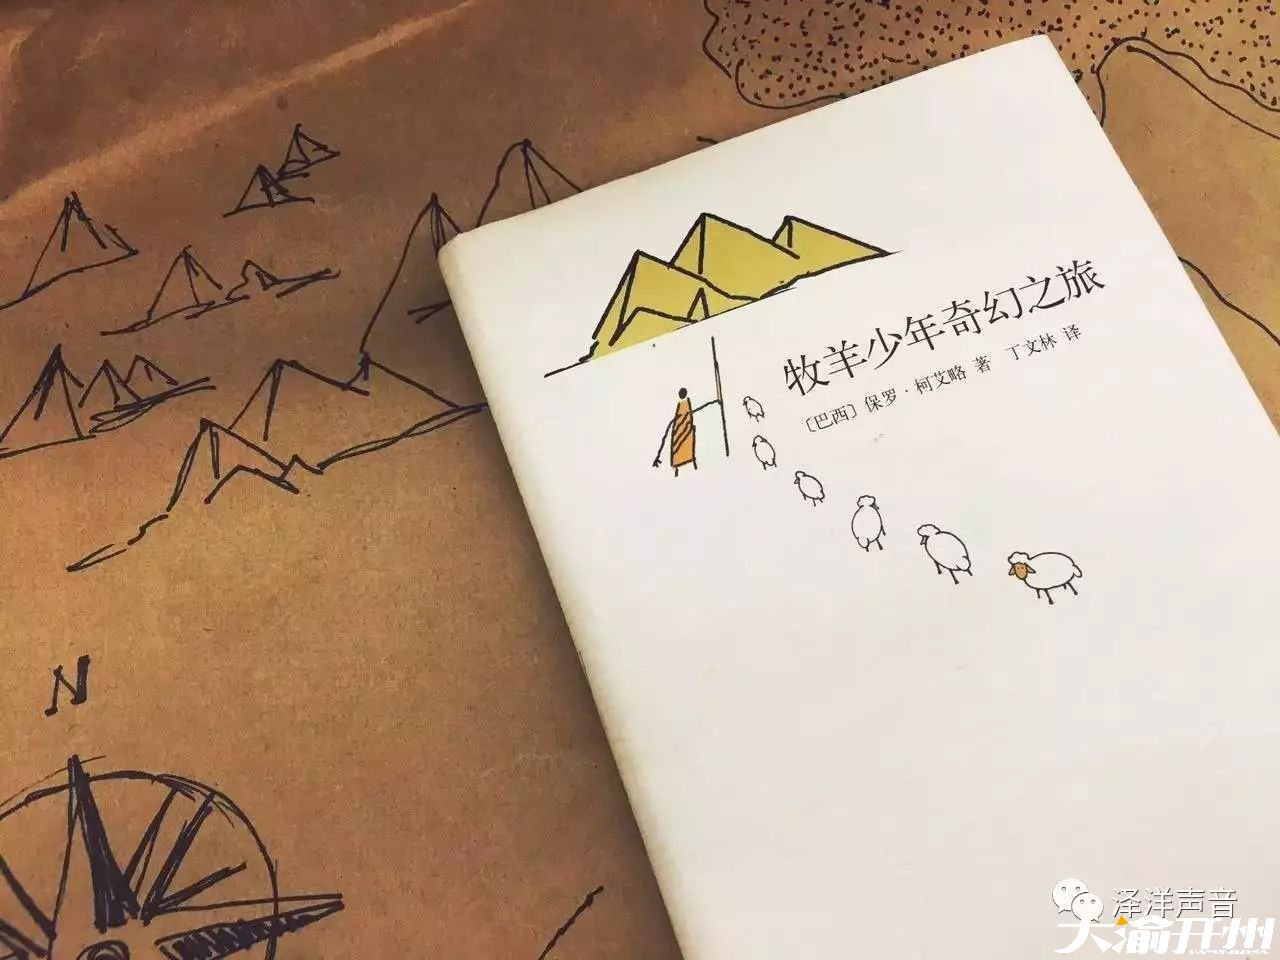 牧羊少年奇幻之旅
〔巴西〕保罗·柯艾略 著 丁文林 译
N
泽洋声音
大渝开州